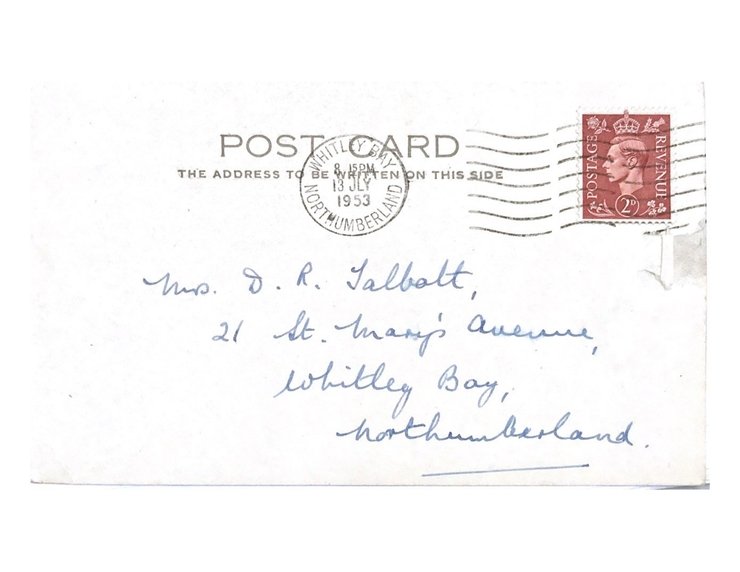 POST CARD
THE ADDRESS TO BE WRITTEN ON THIS SIDE
WHITLEY BAY
8. 15PM
13 JLY
1953
NORTHUMBERLAND
POSTAGE
REVENUE
2D
Mrs. D. R. Talbott,
21 St. Mary's Avenue,
Whitley Bay,
Northumberland.